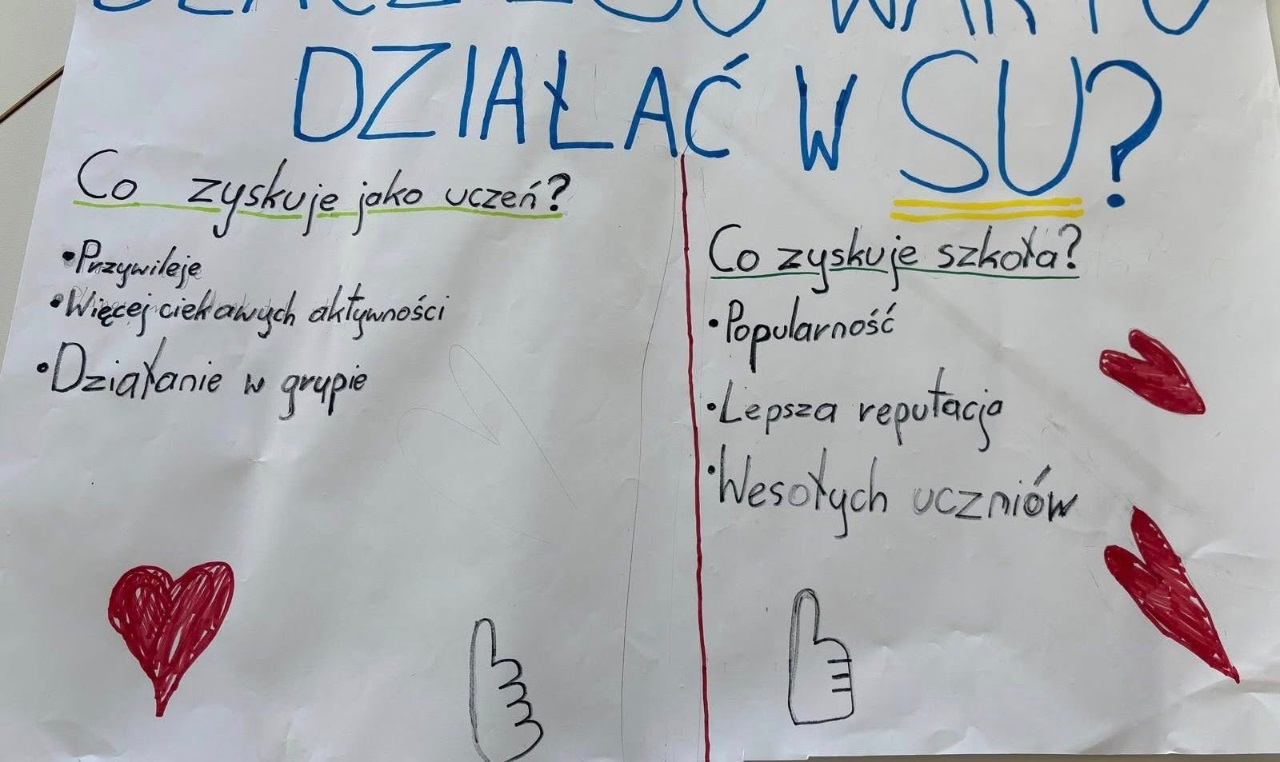 DLACZEGO WARTO
DZIAŁAĆ W SU?
Co zyskuje jako uczeń?
•Przywileje
•Więcej ciekawych aktywności
•Działanie w grupie
Co zyskuje szkoła?
•Popularność
•Lepsza reputacja
•Wesołych uczniów